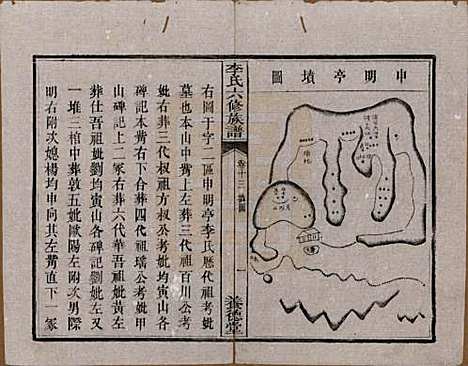 申明亭墳圖
李氏六修族譜
卷十三 墳圖
一
養德堂
右圖于字二區申明亭李氏歷代祖考妣
墓也本山中嵴上左葬三代祖百川公考
妣右葬三代叔祖方叔公考妣均寅山各
碑記本嵴右下合葬四代祖璚公考妣甲
山碑記上二冢右葬六代華吾祖妣黃左
葬仕吾祖妣劉均寅山各碑記劉妣左又
一堆三棺中葬敦五妣歐陽左附次男際
明右附次媳楊均申向其左嵴直下一冢